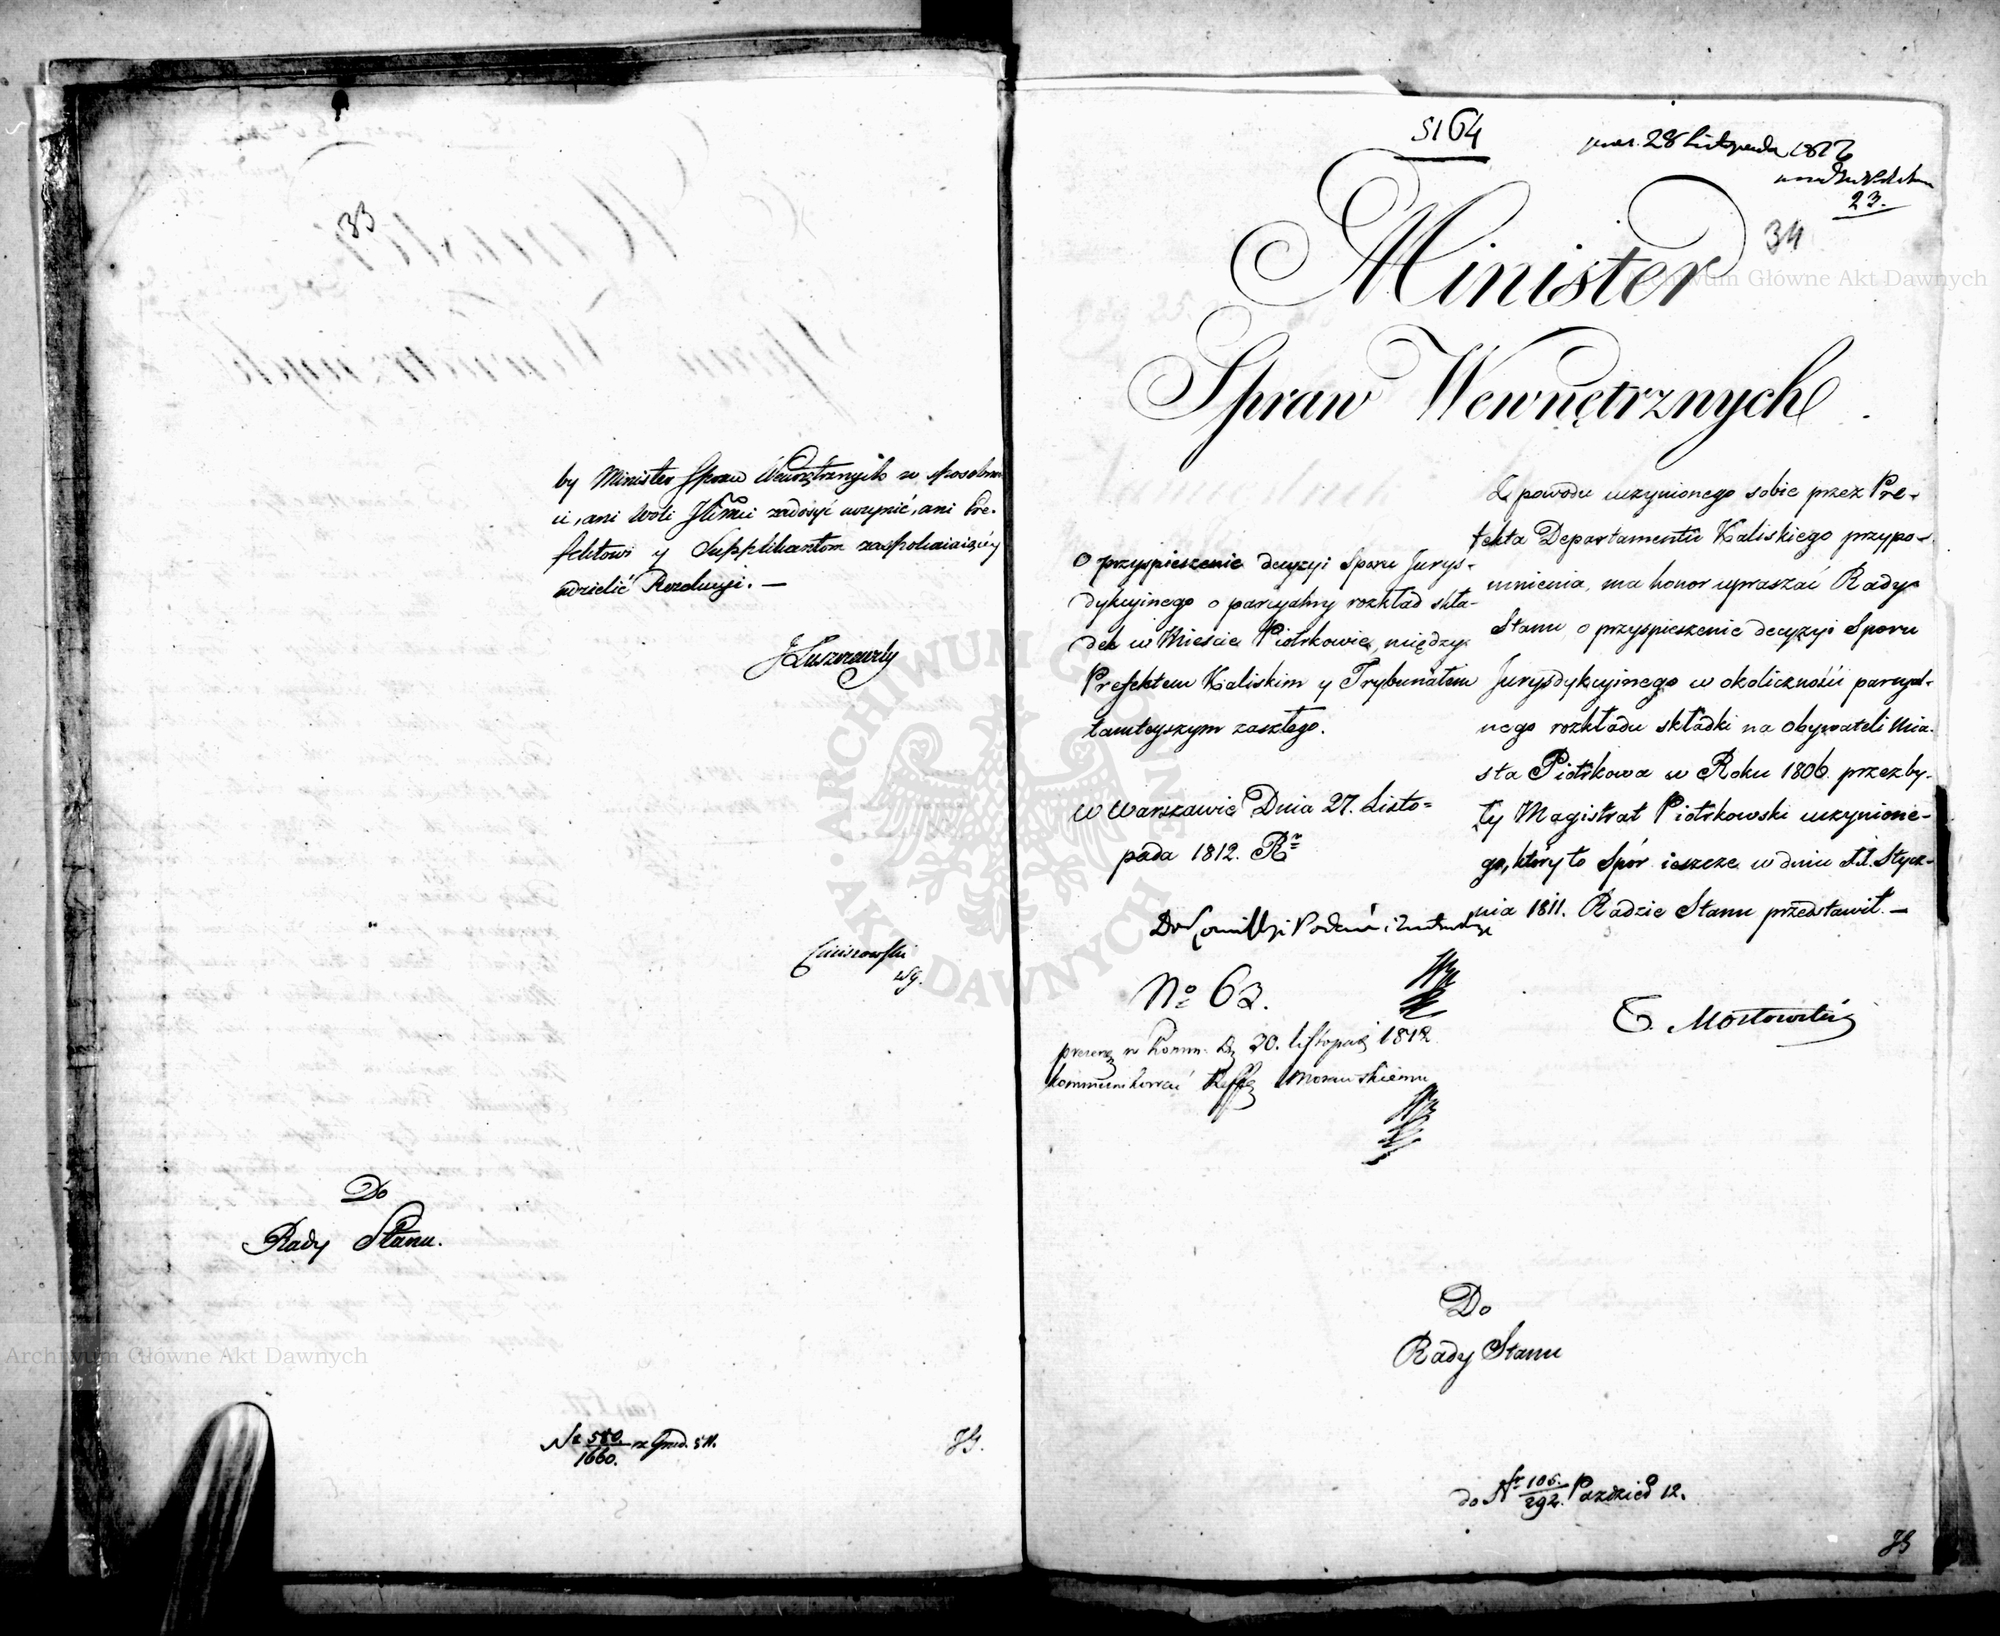 33
by Minister Spraw Wewnętrznych w sposobno-
ci, ani Woli JKMci zadosyć uczynić, ani Pre-
fektowi y Supplikantom zaspokaiaiącéy
udzielić Rezolucyi. —
JŁuszczewsky
Do
Rady Stanu.
Nr 580./1660. z Grud. 811.
5164
28 Listopada 1812
23.
34
Minister
Spraw Wewnętrznych
O przyspieszenie decyzyi Sporu Jurys-
dykcyinego o parcyalny rozkład skła-
dek w Mieście Piotrkowie, między
Prefektem Kaliskim y Trybunałem
tamteyszym zaszłego.
w Warszawie Dnia 27. Listo=
pada 1812. Rr
Z powodu uczynionego sobie przez Pre-
fekta Departamentu Kaliskiego przypo-
mnienia, ma honor upraszać Rady
Stanu o przyspieszenie decyzyi Sporu
Jurysdykcyinego w okoliczności parcyal-
nego rozkładu składki na Obywateli Mia-
sta Piotrkowa w Roku 1806. przez by-
ły Magistrat Piotrkowski uczynione-
go, który to Spór ieszcze w dniu 11. Stycz-
nia 1811. Radzie Stanu przedstawił. —
T. Mostowski
Do Kommissyi Podań i
No 63.
w Komm. D. 30. listopad 1812
kommunikować Reff Morawskiemu
Do
Rady Stanu
do Nr 106./292. Paździer 12.
ARCHIWUM GŁÓWNE AKT DAWNYCH
Archiwum Główne Akt Dawnych
Archiwum Główne Akt Dawnych